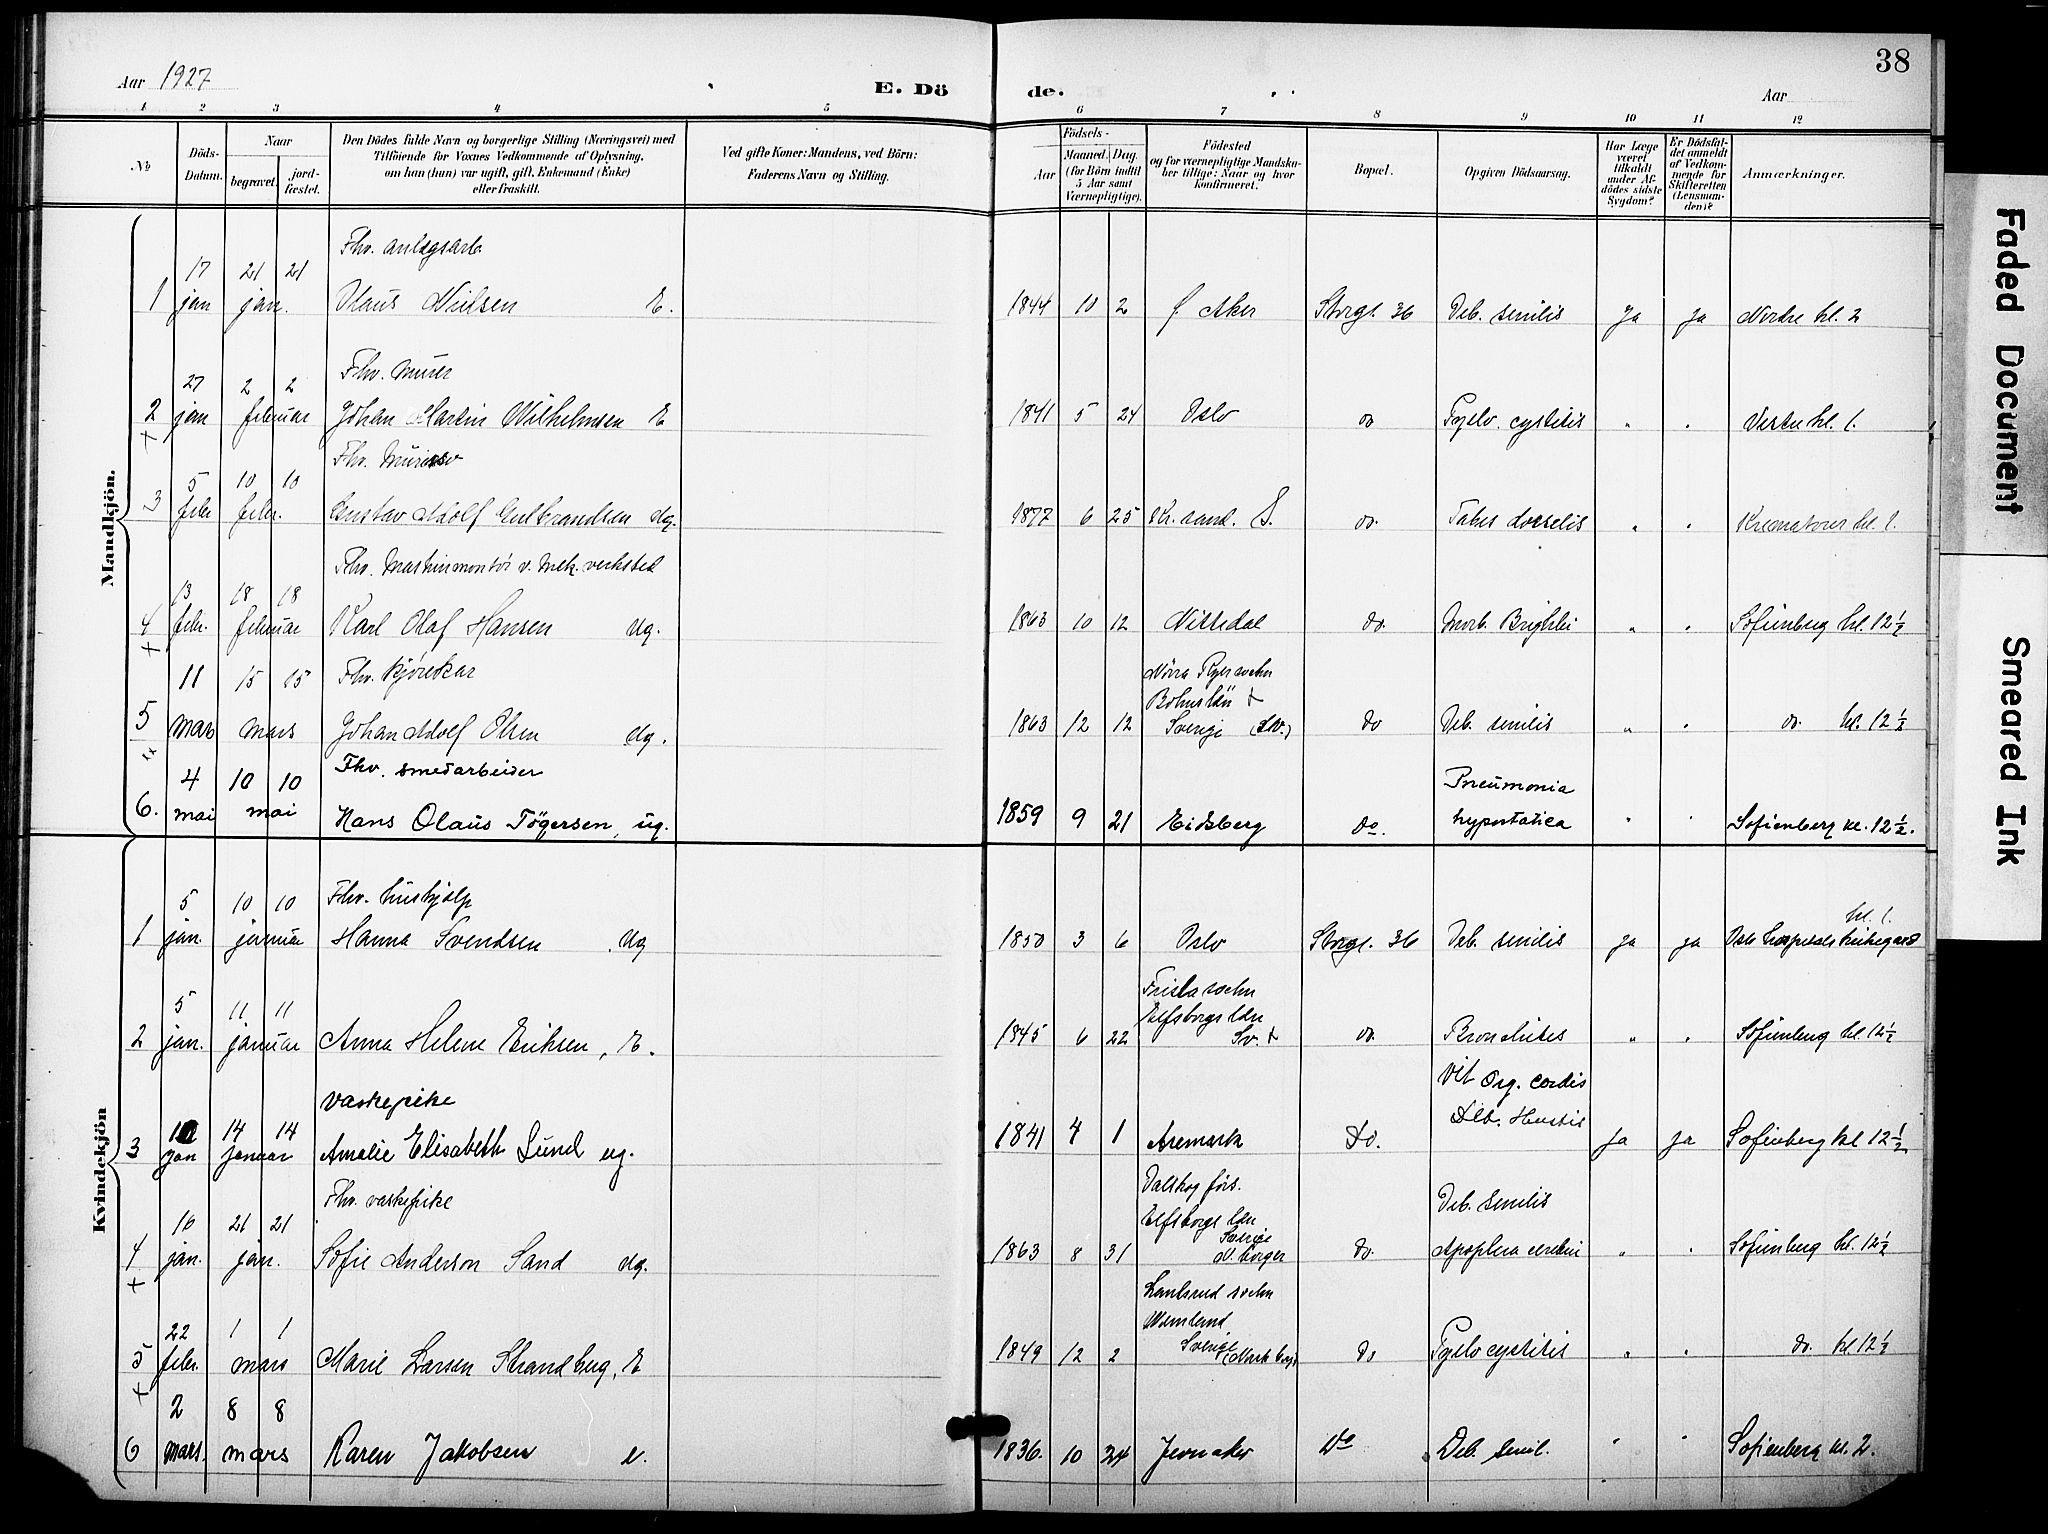 38
Aar 1927
E. Döde.
Aar
1 2 3 4 5 6 7 8 9 10 11 12
No
Döds-Datum.
Naar
begravet.
jord-fæstet.
Den Dödes fulde Navn og borgerlige Stilling (Næringsvei) med
Tilföiende for Voxnes Vedkommende af Oplysning,
om han (hun) var ugift, gift, Enkemand (Enke)
eller fraskilt.
Ved gifte Koner: Mandens, ved Börn:
Faderens Navn og Stilling.
Födsels-
Aar
Maaned. Dag.
(for Börn indtil
5 Aar samt
Værnepligtige).
Födested
og for værnepligtige Mandska-
ber tillige: Naar og hvor
konfirmeret.
Bopæl.
Opgiven Dödsaarsag.
Har Læge
været
tilkaldt
under Af-
dödes sidste
Sygdom?
Er Dödsfal-
det anmeldt
af Vedkom-
mende for
Skifteretten
(Lensman-
den)?
Anmærkninger.
Mandkjön.
Fhv. anlegsarb.
1 17 jan 21 21 jan. Olaus Nielsen E. 1844 10 2 Ø. Aker Storgt. 36 Deb. senilis Ja ja Nordre kl. 2
Fhv. murer
2 27 jan 2 2 februar Johan Martin Wilhelmsen E 1841 5 24 Oslo do Pyelo. cystitis " " Vestre kl. 1.
3 5 febr 10 10 febr. Gustav Adolf Gulbrandsen ug. 1877 6 25 Kr.sand. S. do. Tabes dorsalis " " Krematoriet kl. 1.
Fhv. Maskinmontør v. mek. verksted
4 13 febr. 18 18 februar Karl Olaf Hansen ug. 1863 10 12 Nittedal do. Morb. Brightii " " Sofienberg kl. 12 ½
Fhv. kjørekar
Bohuslän
5 11 mars 15 15 mars Johan Adolf Olsen ug. 1863 12 12 Sverige do Deb. senilis " " do. kl. 12 ½
Fhv. smedarbeider
Pneumonia
6. 4 mai 10 10 mai Hans Olaus Tögersen, ug. 1859 9 21 Eidsberg do. hypostatica " " Sofienberg kl. 12 ½.
Kvindekjön
Fhv. hushjelp
kl. 1.
1 5 jan. 10 10 januar Hanna Svendsen ug 1850 3 6 Oslo Storgt. 36 Deb. senilis ja ja Oslo hospitals kirkegard
Elfsborgs län
2 5 jan. 11 11 januar Anna Helene Eriksen, E. 1845 6 22 Sv. do. Bronchitis " " Sofienberg kl. 12 ½
vaskepike
Vit Org. cordis
3 jan 14 14 januar Amalie Elisabeth Lund ug. 1841 4 1 Aremark Do. ja ja Sofienberg kl 12 ½
Fhv. vaskepike
Dalskog förs.
Elfsborgs län
Sverige
Deb. senilis
4 16 jan. 21 21 jan. Sofie Anderson Sand ug. 1863 8 31 N. borger do. Apoplexia cerebri " " Sofienberg kl. 12 ½
Sverige
5 22 febr. 1 1 mars Marie Larsen Strandberg, E 1849 12 2 do Pyelocystitis " " do. kl 12 ½
6 2 mars. 8 8 mars Karen Jakobsen e. 1836. 10 24 Jevnaker Do Deb. senil. " " Sofienberg kl. 2.
Faded Document
Smeared Ink